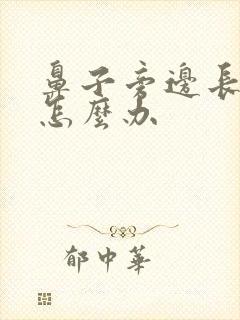 鼻子旁邊長
怎麼办
郁中華